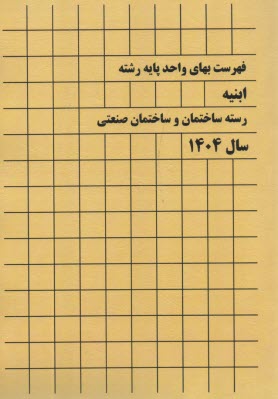 فهرست بهای واحد پایه رشته
ابنیه
رسته ساختمان و ساختمان صنعتی
سال ۱۴۰۴